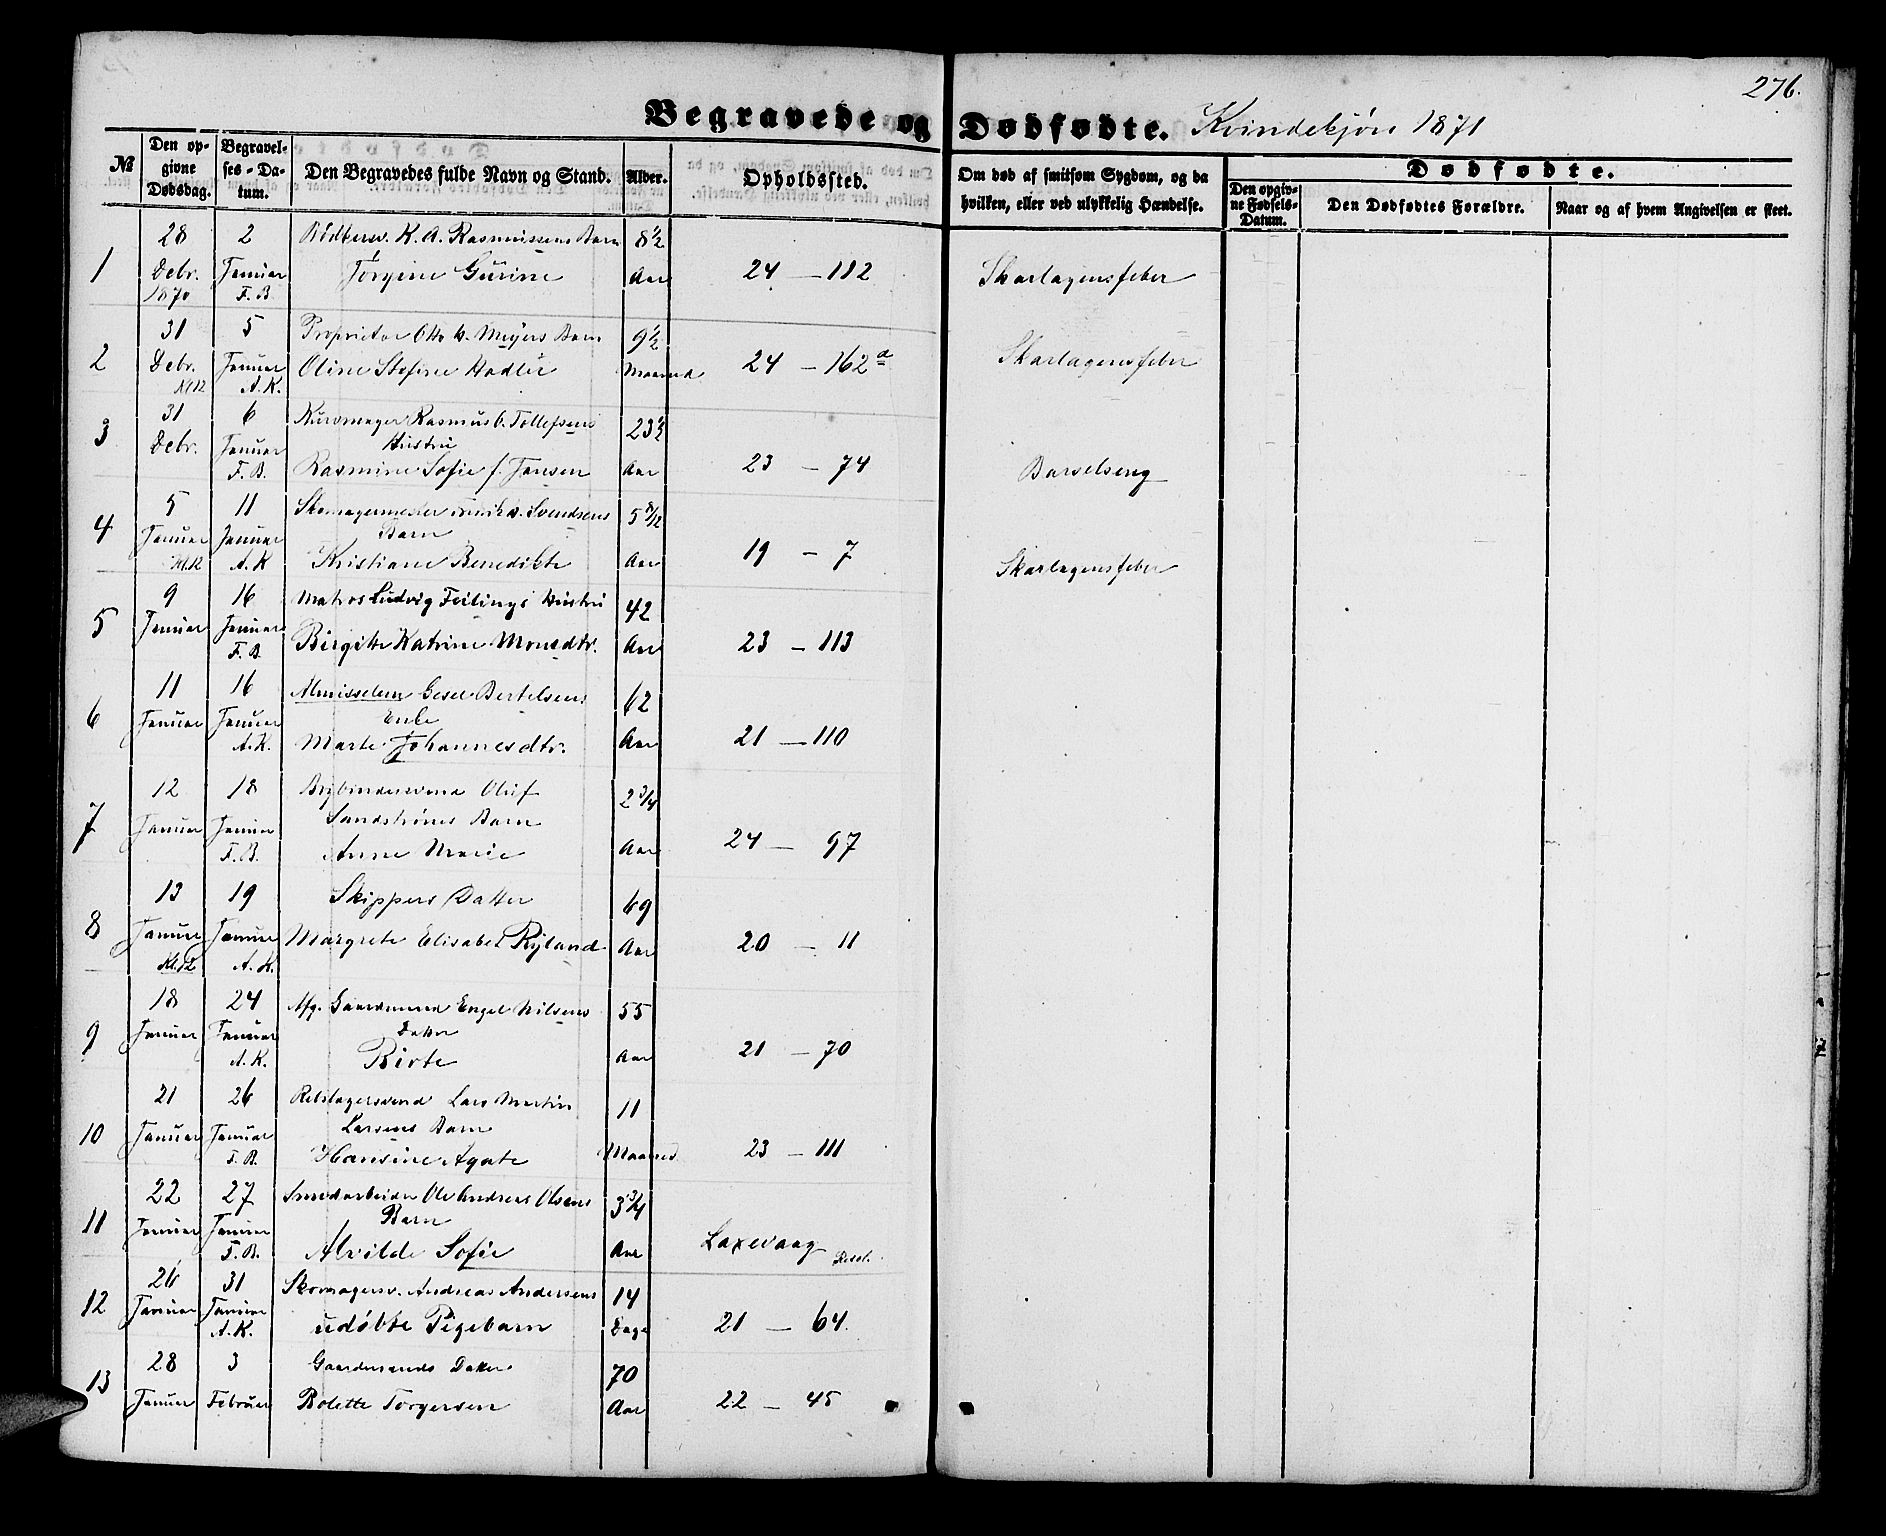 276.
Begravede og Dødfødte. Kvindekjøn 1871
№
Den opgivne Dødsdag.
Begravelses-Datum.
Den Begravedes fulde Navn og Stand.
Alder.
Opholdssted.
Om død af smitsom Sygdom, og da hvilken, eller ved ulykkelig Hændelse.
Dødfødte.
Den opgivne Fødsels-Datum.
Den Dødfødtes Forældre.
Naar og af hvem Angivelsen er skeet.
1 28 Debr. 1870 2 Januar F. B. Bødkersv. K. A. Rasmussens Barn
Jørgine Gurine 8½ Aar 24 — 112 Skarlagensfeber
2 31 Debr. Kl 12 5 Januar A. K. Proprietær Otto Meyers Barn
Oline Stofine 9½ Maaned 24 — 162 a Skarlagensfeber
3 31 Debr. 6 Januar F. B. Rasmus Tollefsens
Hustru
Rasmine Sofie f. Jansen 23½ Aar 23 — 74 Barselseng
4 5 Januar Kl. 12 11 Januar A. K Skomagermester Svendsens
Barn
Kristiane Benedikte 5 8/12 Aar 19 — 7 Skarlagensfeber
5 9 Januar 16 Januar F. B. Matros Ludvig Feilings Hustru
Birgitte Katrine Monsdtr. 42 Aar 23 — 113
6 11 Januar 16 Januar A. K. Almisselem Gesel Bertelsens
Enke
Marte Johannesdtr. 62 Aar 21 — 110
7 12 Januar 18 Januar F. B. Oluf
Sandstrøms Barn
Anne Marie 2 3/4 Aar 24 — 97
8 13 Januar Kl. 12 19 Januar A. K. Skippers Datter
Margrete Elisabet Ryland 69 Aar 20 — 11
9 18 Januar 24 Januar A. K. Afg. Gaardmand Engel Nilsens
Datter
Birte 55 Aar 21 — 70
10 21 Januar 26 Januar F. B. Rebslagersvend Lars Martin
Larsens Barn
Hansine Agate 11 Maaned 23 — 111
11 22 Januar 27 Januar F. B. Ole Andreas Olsens
Barn
Alvilde Sofie 3 3/4 Aar Laxevaag
12 26 Januar 31 Januar A. K. Skomagersv. Andreas Andersens
udøbte Pigebarn 14 Dage 21 — 64.
13 28 Januar 3 Februar Gaardmands Datter
Bolette Torgersen 70 Aar 22 — 45